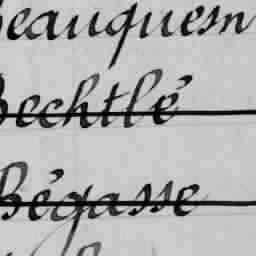 Beauquesn
Bechtlé
Bégasse